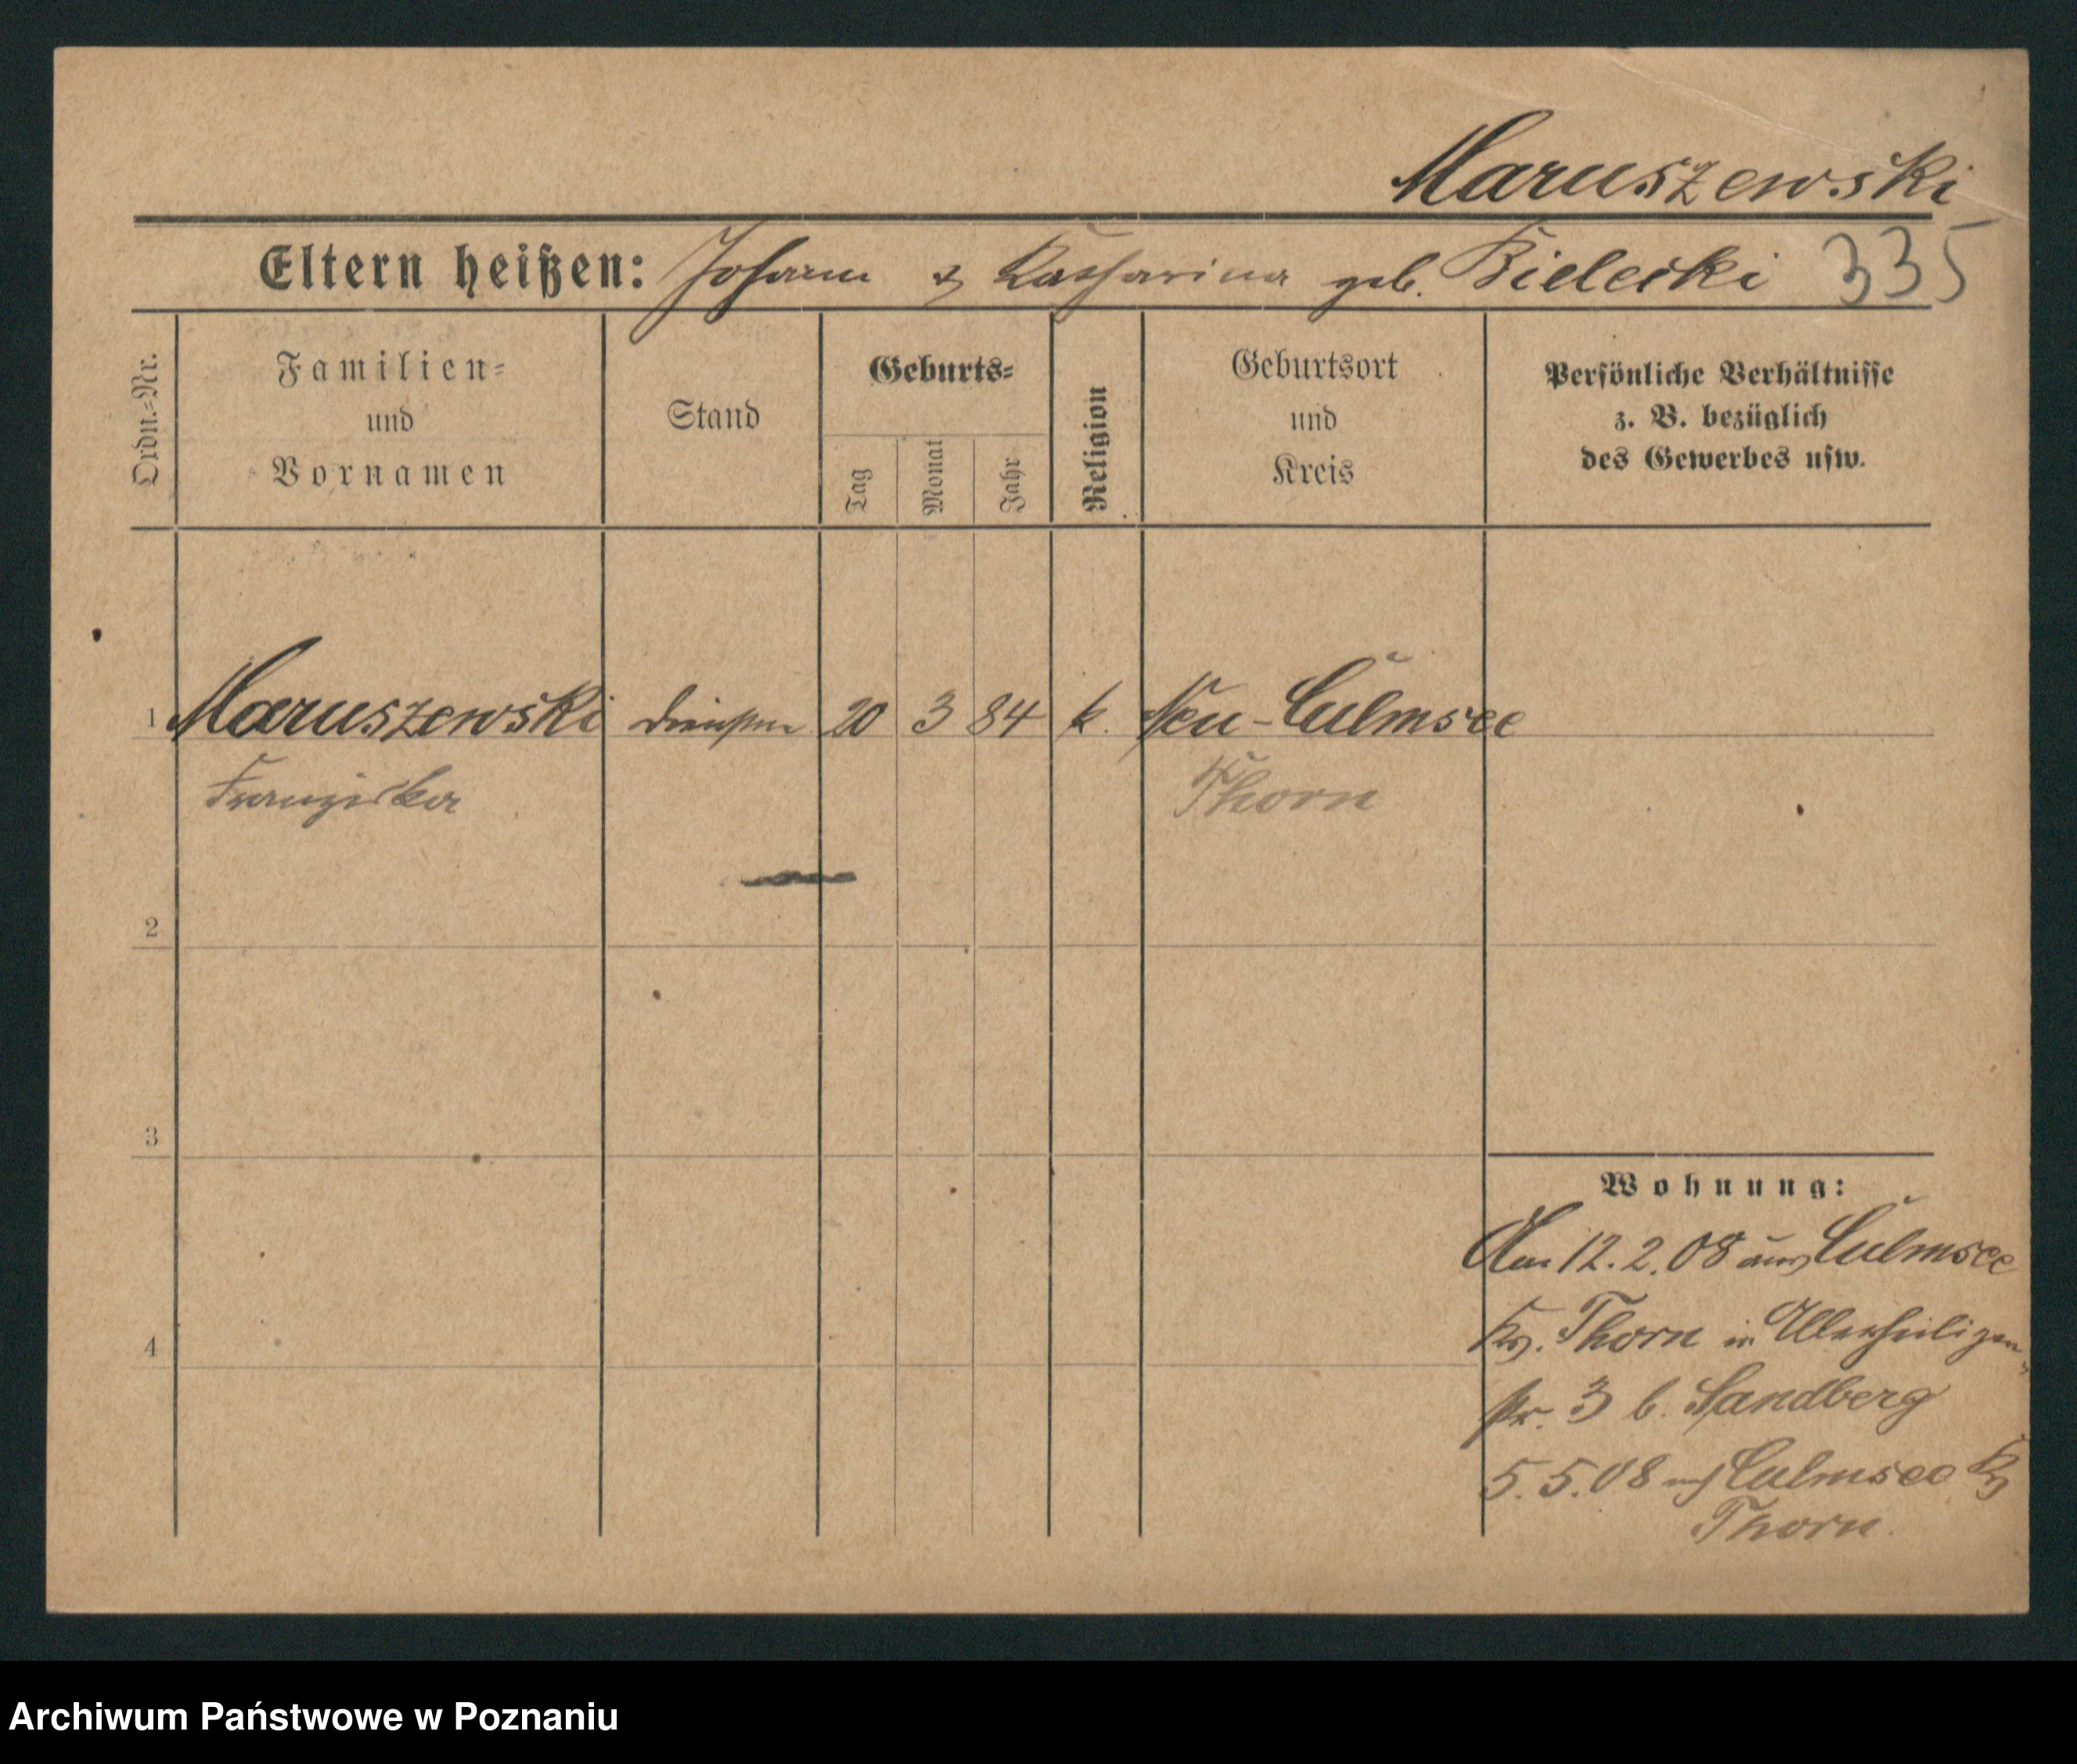 Maruszewski
Eltern heißen: Johann & Katharina geb. Bielecki 335
Ordn.=Nr.
Familien=
und
Vornamen
Stand
Geburts=
Tag
Monat
Jahr
Religion
Geburtsort
und
Kreis
Persönliche Verhältnisse
z. B. bezüglich
des Gewerbes usw.
1 Maruszewski 20 3 84 k. Neu-Culmsee
Franziska Thorn
2
3
4
Wohnung:
Am 12.2.08 aus Culmsee
Kr. Thorn in Allerheiligen
str. 3 b. Sandberg
5.5.08 nach Culmsee Kr
Thorn.
Archiwum Państwowe w Poznaniu